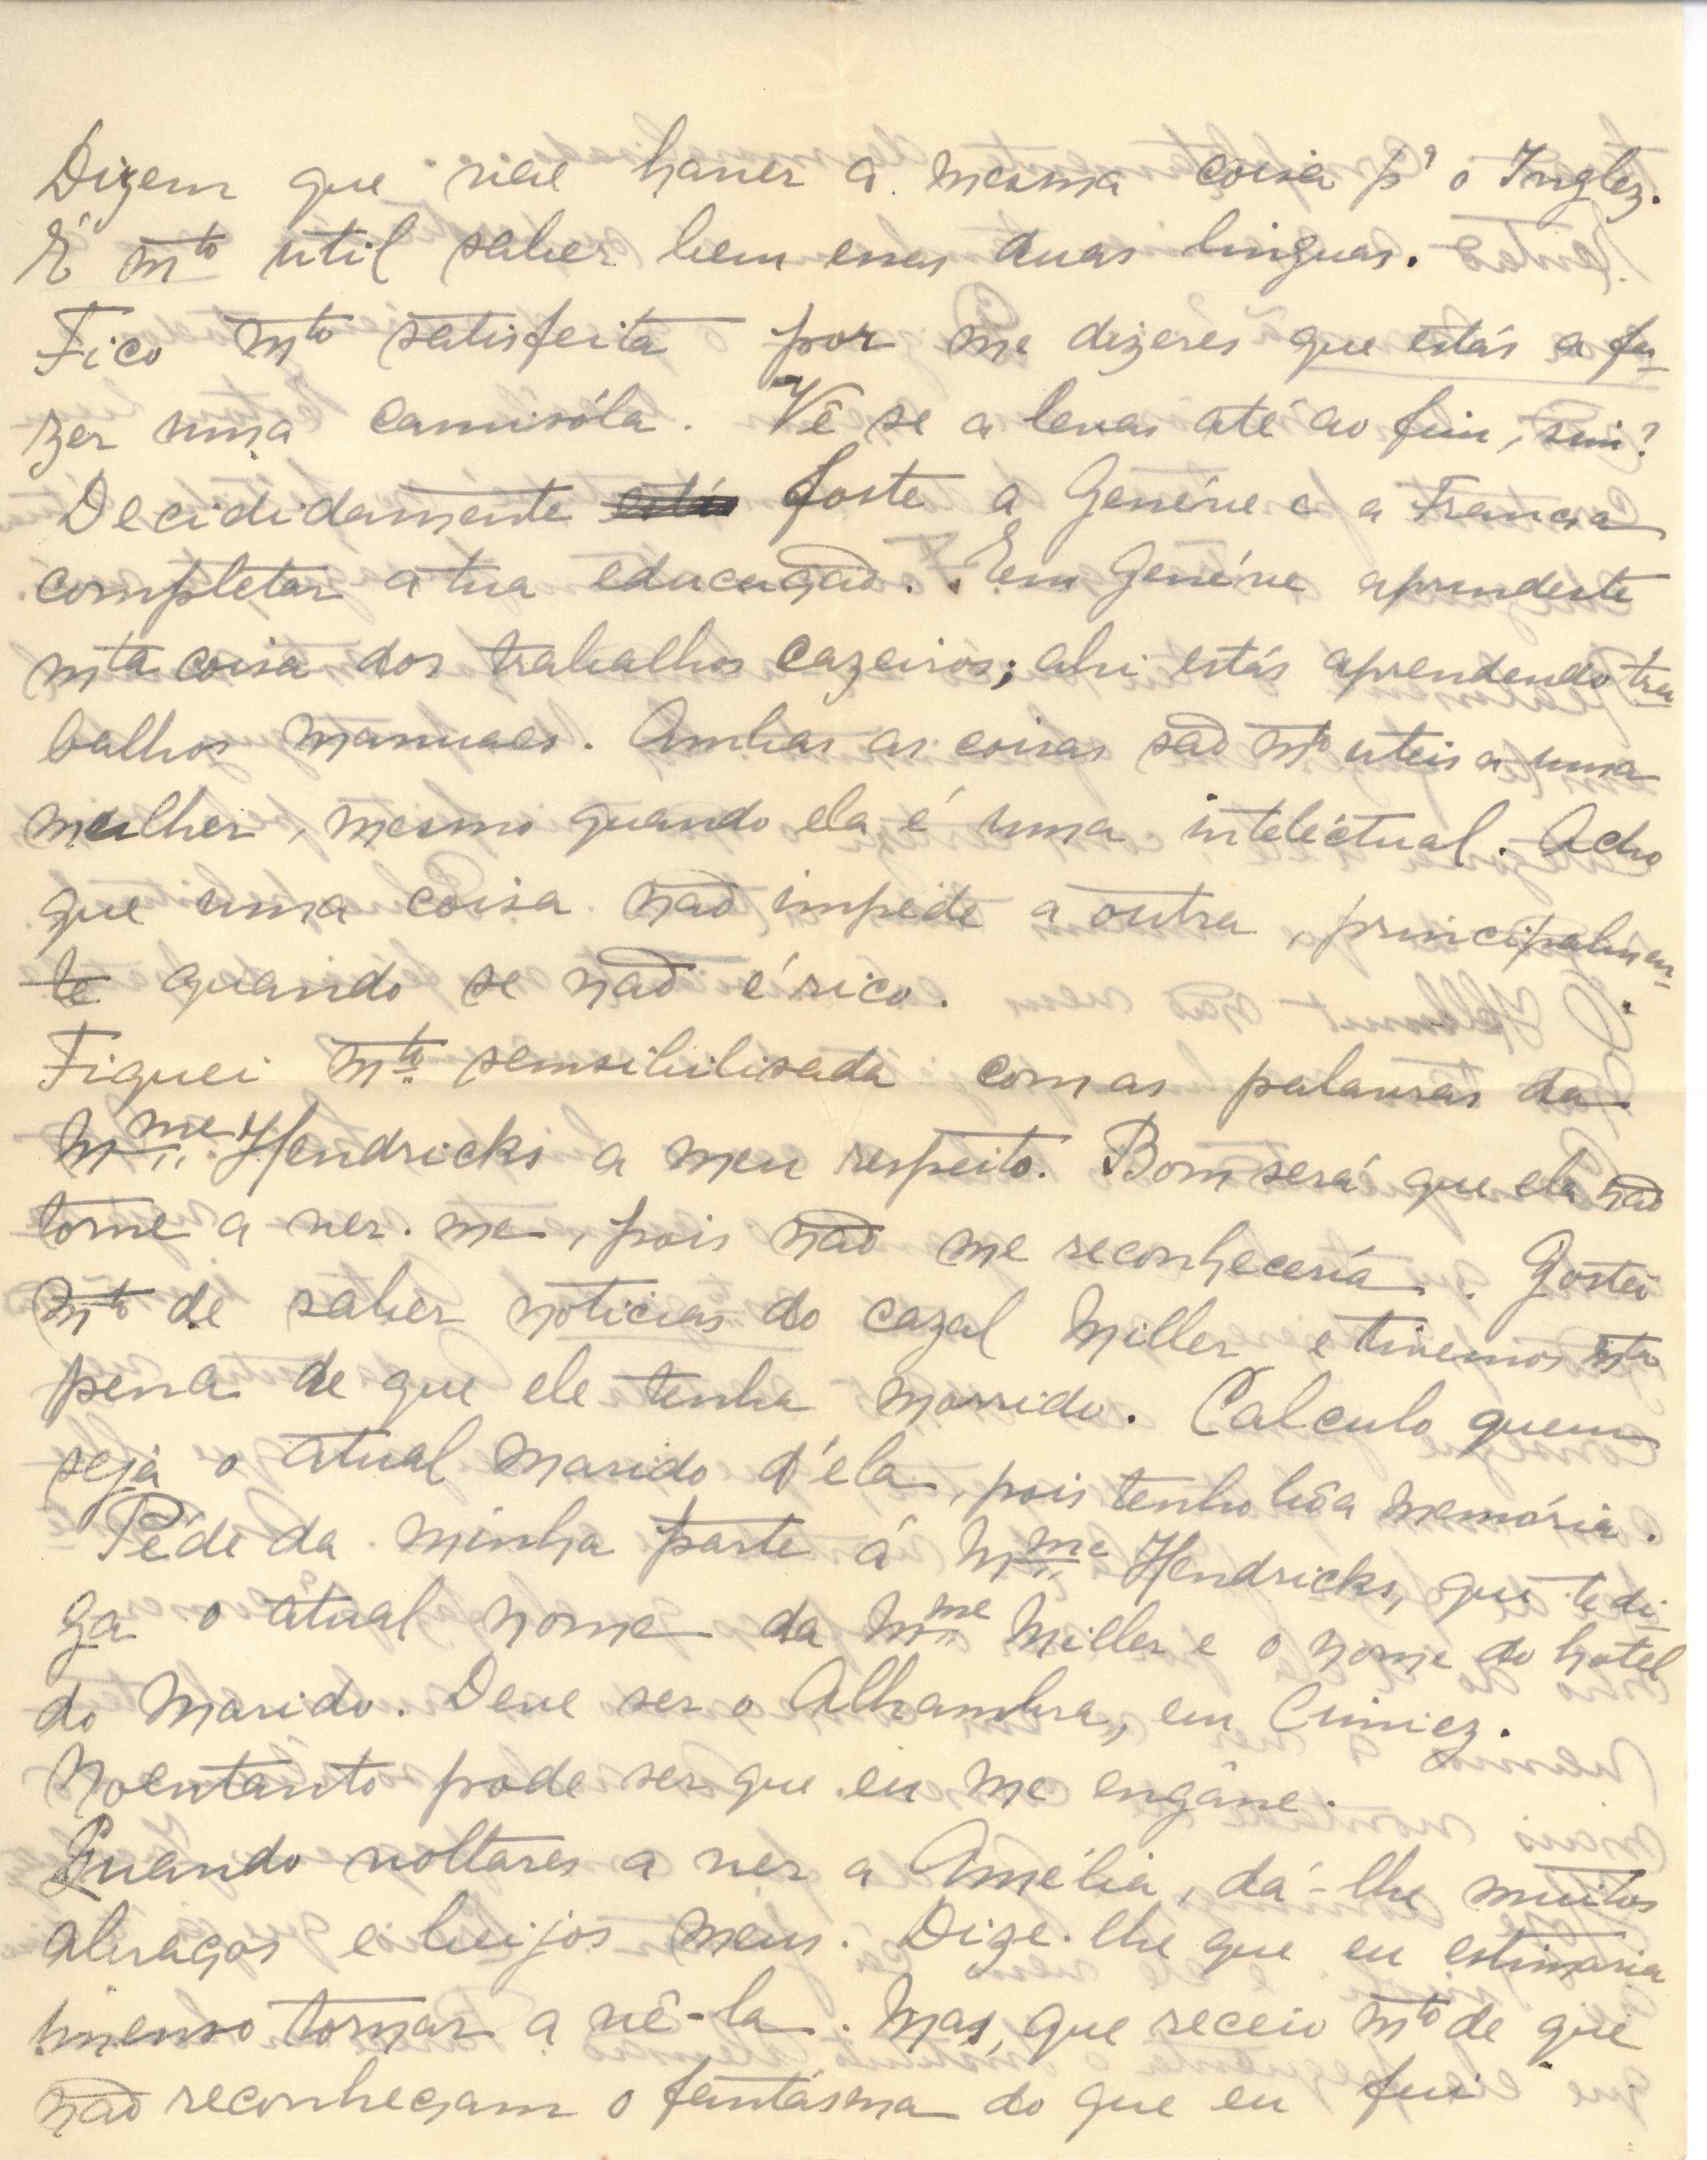 Dizem que vae haver a mesma coisa pª o Inglez.
É mto util saber bem essas duas linguas.
Fico mto satisfeita por me dizeres que estás a fa-
zer uma camisóla. Vê se a levas até ao fim, sim?
Decididamente estás foste a Genéve e a França
completar a tua educação. Em Genéve aprendeste
mta coisa dos trabalhos cazeiros; ahi estás aprendendo tra-
balhos manuaes. Ambas as coisas são mto uteis a uma
mulher, mesmo quando ela é uma inteléctual. Acho
que uma coisa não impede a outra, principalmen-
te quando se não é rico.
Fiquei mto semsibilisada com as palavras da
Mme Hendricks a meu respeito. Bom será que ela não
torne a ver-me, pois não me reconheceria. Gostei
mto de saber noticias do cazal Miller e tivemos mta
pena de que ele tenha morrido. Calculo quem
seja o atual marido d'ela, pois tenho bôa memória.
Péde da minha parte á Mme Hendricks, que te di-
ga o atual nome da Mme Miller e o nome do hotel
do marido. Deve ser o Alhambra, em Cimiez.
Noentanto pode ser que eu me engâne.
Quando voltares a ver a Amélia, dá-lhe muitos
abraços e beijos meus. Dize-lhe que eu estimaria
imenso tornar a vê-la. Mas, que receio mto de que
não reconheçam o fantásma do que eu fui